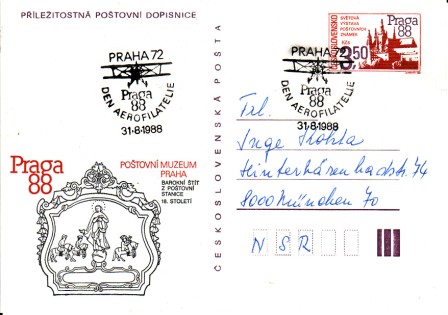 PŘÍLEŽITOSTNÁ POŠTOVNÍ DOPISNICE
PRAHA 72
Praga
88
DEN AEROFILATELIE
31-8-1988
Praga
88
POŠTOVNÍ MUZEUM
PRAHA
BAROKNÍ ŠTÍT
Z POŠTOVNÍ
STANICE
18. STOLETÍ
ČESKOSLOVENSKÁ POŠTA
PRAHA 72
Praga
88
DEN AEROFILATELIE
31-8-1988
ČESKOSLOVENSKO
SVĚTOVÁ
VÝSTAVA
POŠTOVNÍCH
ZNÁMEK
Kčs
2,50
Praga
88
Inge
8000 München 70
N S R